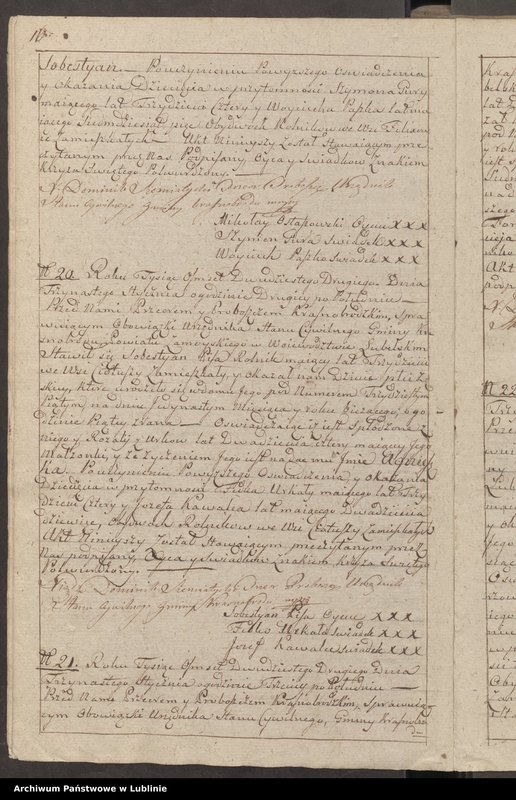 Sobestyan. — Po uczynieniu Powyzszego Oswiadczenia
y Okazania Dziecięcia w przytomnosci Szymona Gury
maiącego lat Trzydzieści Cztery y Woyciecha Papka lat ma
iącego Siedmdziesiąt pięc Obydwóch Rolnikow we Wsi
Zamieszkałych — Akt Ninieyszy Został Stawaiącym prze
czytanym przez Nas Podpisany Oyca y Swiadkow Znakiem
Krzyża Swiętego Potwierdzony. —
X. Dominik Przeor Proboszcz Urzędnik
Stanu Cywilnego Gminy Krasnobrodu
Mikołay Ostapowski Oyciec X X X
Szymon Gura Swiadek X X X
Woyciech Papka Swiadek X X X
N 20. Roku Tysiąc Ośmset Dwudziestego Drugiego Dnia
Trzynastego Stycznia o godzinie Drugiey po Południu —
Przed Nami Przeorem y Proboszczem Krasnobrodzkim, Spra
wuiącym Obowiązki Urzędnika Stanu Cywilnego Gminy Kra
snobrodu Powiatu Zamoyskiego w Woiewodztwie Lubelskim
Stawił się Sobestyan Pisa Rolnik maiący lat Trzydzieści
we Wsi Ciotuszy Zamieszkały, y Okazał nam Dziecie płci Żeń
skiey, które urodziło się w domu Jego pod Numerem Trzydziestym
Piątym na dniu Dwunastym Miesiąca y roku bieżącego o go
dzinie Piątey zrana — Oswiadczaiąc iż iest Spłodzone z
niego y Rozalij z Urkow lat Dwadzieścia cztery maiącey Jego
Małżonki, y że Życzeniem Jego iest nadac mu Jmie Agniesz
ka. Po uczynieniu Powyzszego Oswiadczenia, y Okazania
Dziecięcia w przytomnosci Fedka Urkały maiącego lat Trzy
dzieści Cztery y Jozefa Kawalca lat maiącego Dwadzieścia
dziewięc, Obydwoch Rolnikow we Wsi Ciotuszy Zamieszkałych
Akt Ninieyszy Został Stawaiącym przeczytanym przez
Nas podpisany, Oyca y Swiadkow Znakiem Krzyża Swiętego
Potwierdzony. —
X. Dominik Przeor Proboszcz Urzędnik
Stanu Cywilnego Gminy Krasnobrodu
Sobestyan Pisa Oyciec X X X
Fedko Urkała Swiadek X X X
Jozef Kawalec Swiadek X X X
N 21. Roku Tysiąc Ośmset Dwudziestego Drugiego Dnia
Trzynastego Stycznia o godzinie Trzeciey po Południu —
Przed Nami Przeorem y Proboszczem Krasnobrodzkim, Sprawuią
cym Obowiązki Urzędnika Stanu Cywilnego, Gminy Krasnobro
du
N 22
Archiwum Państwowe w Lublinie